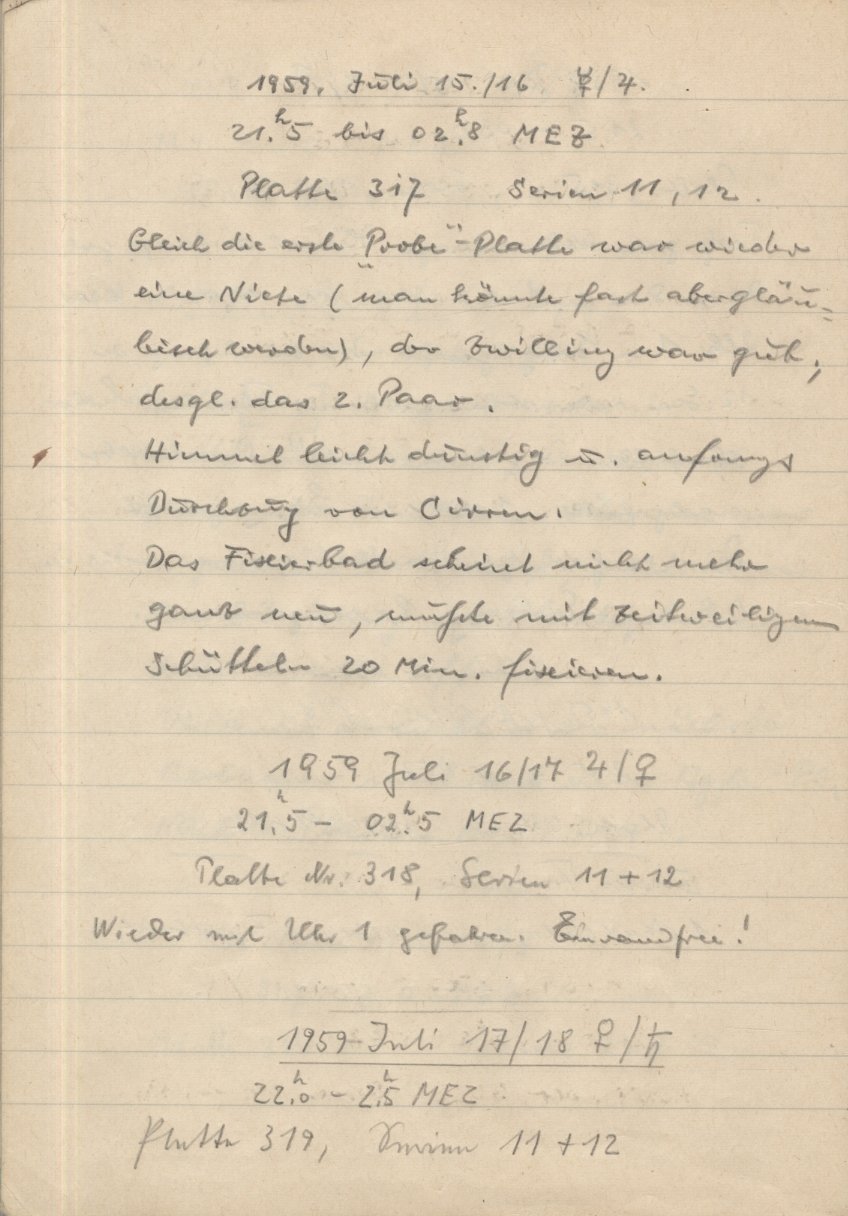 1959, Juli 15./16 ☿/♃.
21.ʰ5 bis 02.ʰ8 MEZ
Platte 317 Serien 11, 12.
Gleich die erste "Probe"-Platte war wieder
eine Niete (man könnte fast abergläu-
bisch werden), der Zwilling war gut,
desgl. das 2. Paar.
Himmel leicht dunstig u. anfangs
Durchzug von Cirren.
Das Fixierbad scheint nicht mehr
ganz neu, mußte mit zeitweiligem
Schütteln 20 Min. fixieren.
1959 Juli 16/17 ♃/♀
21.ʰ5 – 02.ʰ5 MEZ
Platte Nr. 318, Serien 11 + 12
Wieder mit Uhr 1 gefahren. Einwandfrei!
1959 Juli 17/18 ♀/♄
22.ʰ0 – 2.ʰ5 MEZ
Platte 319, Serien 11 + 12